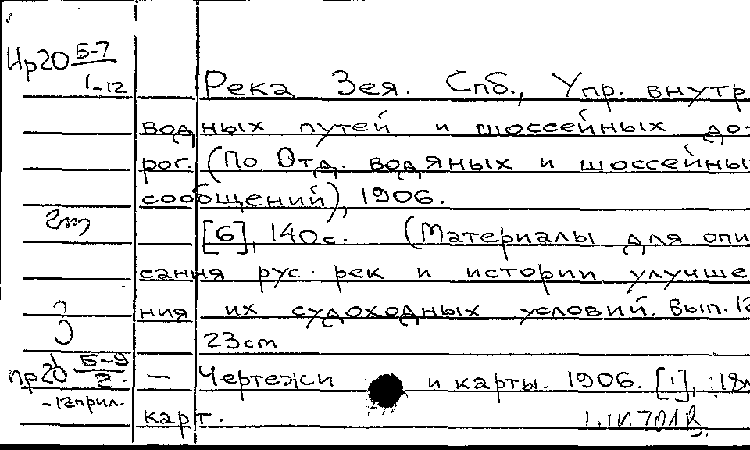 Пр20 Б-7
1-12
Река Зея. Спб., Упр. внутр
водных путей и шоссейных до-
рог (По Отд. водяных и шоссейны
сообщений), 1906.
[6], 140с. (Материалы для опи
сания рус. рек и истории улучше
ния их судоходных условий. Вып.
23cm
Пр20 Б-9
2.
-12прил.
— Чертежи и карты. 1906. [1],
карт.